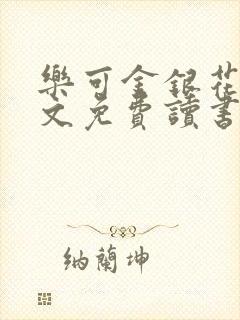 樂可金銀花
文免費讀書
納蘭坤